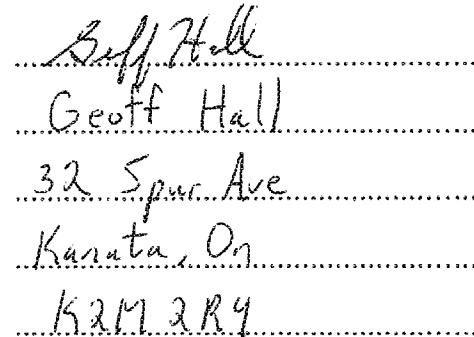 Geoff Hall
Geoff Hall
32 Spur Ave
Kanata, On
K2M 2R4